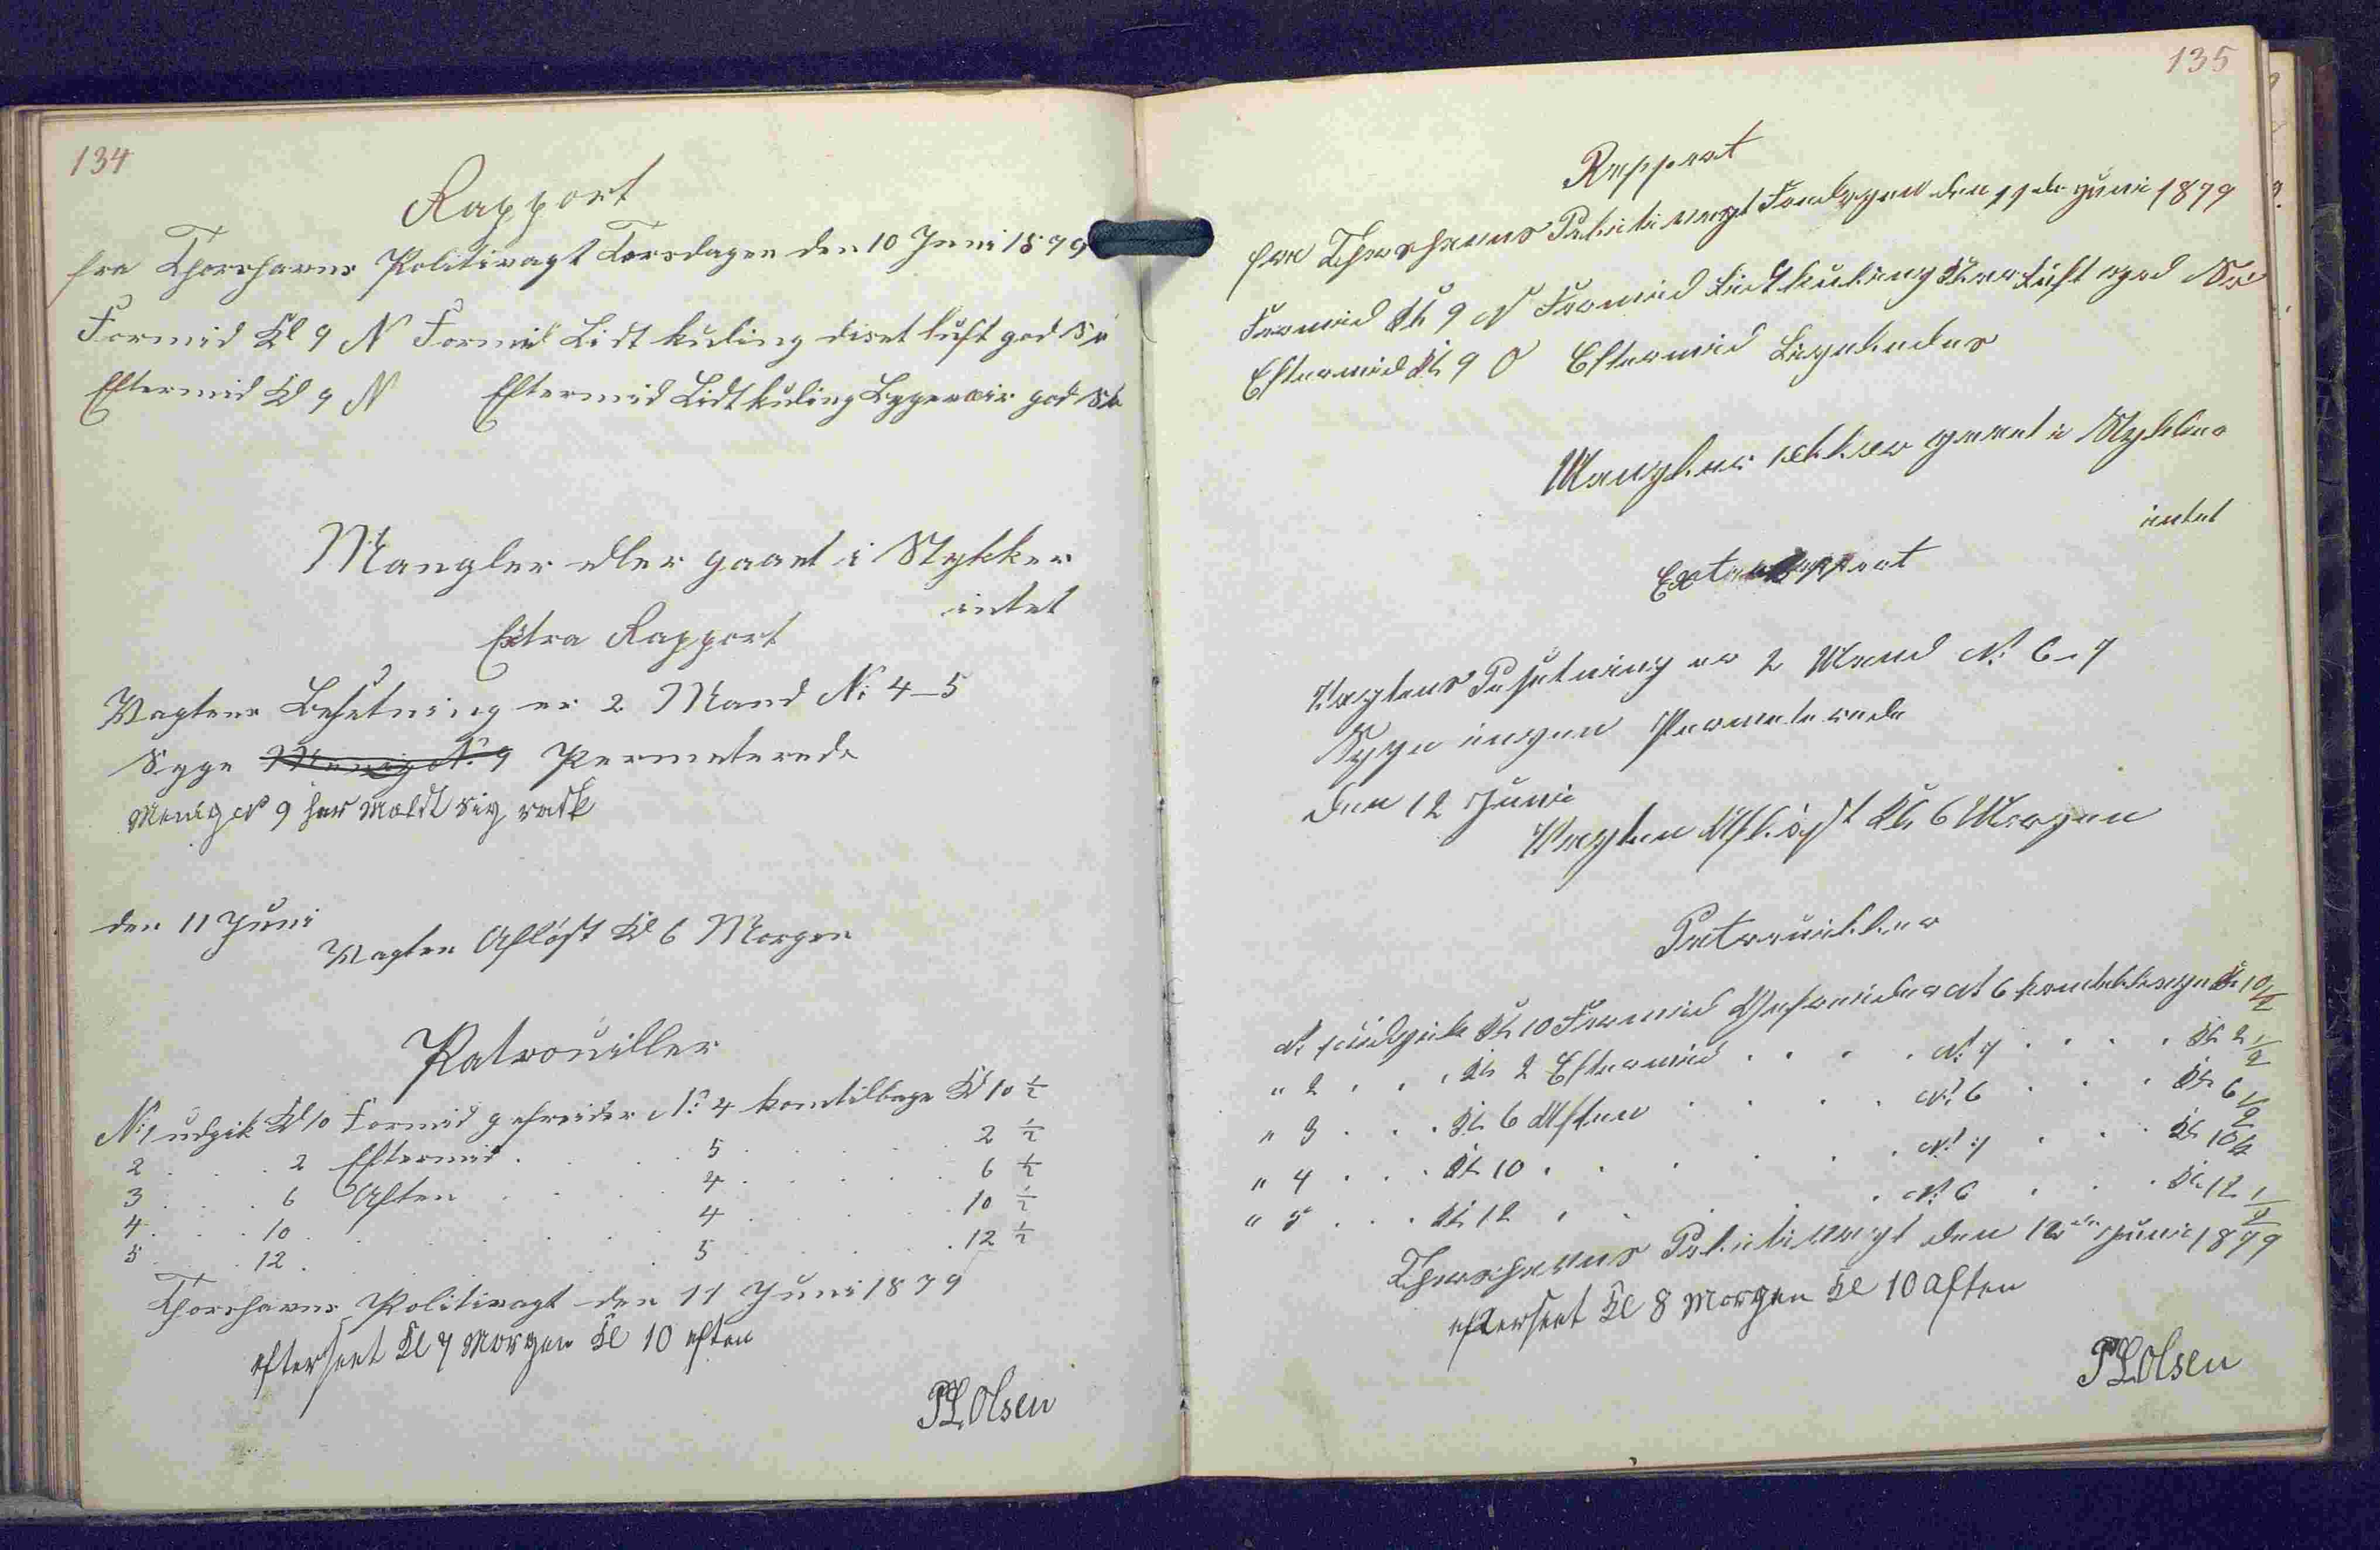 134
Rapport
fra Thorshavns Politivagt Torsdagen den 10 Juni 1879
Formid Kl 9 N Formid Lidt kuling diset luft god Sø
Eftermid Kl 9 N Eftermid Lidt kuling Bygevær god Sø
Mangler eller gaaet i Stykker
intet
Extra Rapport
Vagtens Besetning er 2 Mand No 4–5
Syge Menig No 9 Permeterede
Menig No 9 har Meldt sig rask
den 11 Juni
Vagten Afløst Kl 6 Morgen
Patrouiller
No 1 udgik Kl 10 Formid gefreider No 4 kom tilbage Kl 10 ½
2 . . . 2 Eftermid . . . 5 . . . 2 ½
3 . . . 6 Aften . . . 4 . . . 6 ½
4 . . . 10 . . . 4 . . . 10 ½
5 . . . 12 . . . 5 . . . 12 ½
Thorshavns Politivagt den 11 Juni 1879
efterseet Kl 7 Morgen Kl 10 aften
PL Olsen
135
Rapport
fra Thorshavns Politivagt den 11de Juni 1879
Formid Kl 9 N Formid Lidt kuling klar Luft god Sø
Eftermid Kl 9 O Eftermid Ligeledes
Mangler eller gaaet i Stykker
intet
Extra Rapport
Vagtens Besetning er 2 Mand No 6–7
Syge ingen Permeterede
den 12 Juni
Vagten Afløst Kl 6 Morgen
Patrouiller
No 1 udgik Kl 10 Formid Gefreider No 6 kom tilbage Kl 10½
" 2 . . . Kl 2 Eftermid . . . No 7 . . . Kl 2 ½
" 3 . . . Kl 6 Aften . . . No 6 . . . Kl 6 ½
" 4 . . . Kl 10 . . . No 7 . . . Kl 10½
" 5 . . . Kl 12 . . . No 6 . . . Kl 12 ½
Thorshavns Politivagt den 12de Juni 1879
efterseet Kl 8 Morgen Kl 10 Aften
PL Olsen